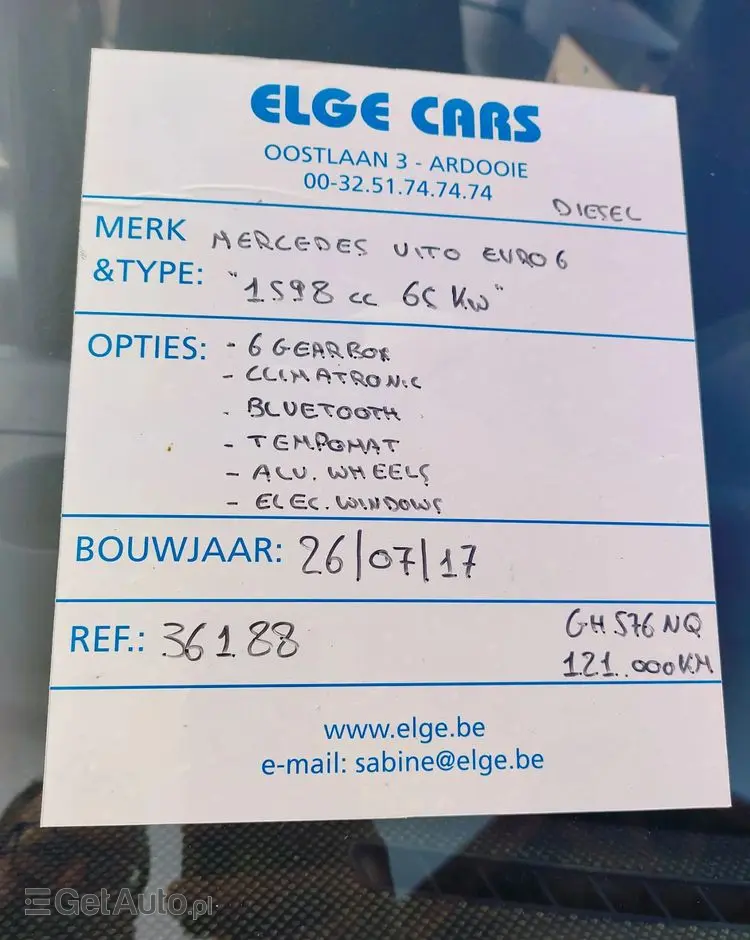 ELGE CARS
OOSTLAAN 3 - ARDOOIE
00-32.51.74.74.74
DIESEL
MERK MERCEDES VITO EURO6
&TYPE: "1598 cc 65 KW"
OPTIES: - 6 GEARBOX
- CLIMATRONIC
- BLUETOOTH
- TEMPOMAT
- ALU. WHEELS
- ELEC. WINDOWS
BOUWJAAR: 26/07/17
REF.: 36188
GH 576 NQ
121.000KM
www.elge.be
e-mail: sabine@elge.be
GetAuto.pl